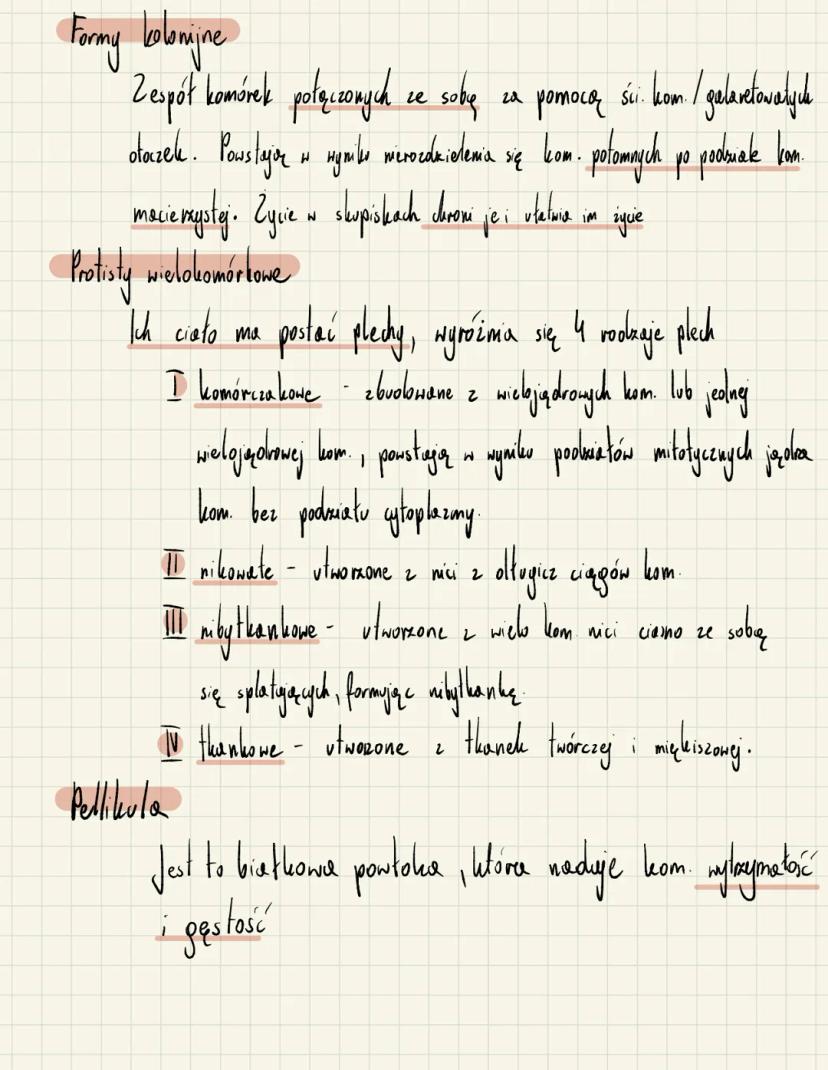 Formy kolonijne
Zespół komórek połączonych ze sobą za pomocą ści. kom. / galaretowatych
otoczek. Powstają w wyniku nierozdzielenia się kom. potomnych po podziale kom.
macierzystej. Życie w skupiskach chroni je i ułatwia im życie
Protisty wielokomórkowe
Ich ciało ma postać plechy, wyróżnia się 4 rodzaje plech
I komórczakowe - zbudowane z wielojądrowych kom. lub jednej
wielojądrowej kom., powstają w wyniku podziałów mitotycznych jądra
kom. bez podziału cytoplazmy.
II nikowate - utworzone z nici z długich ciągów kom.
III nibytkankowe - utworzone z wielu kom. nici ciasno ze sobą
się splatających, formując nibytkankę.
IV tkankowe - utworzone z tkanek twórczej i miękiszowej.
Pellikula
Jest to białkowa powłoka, która nadaje kom. wytrzymałość
i gęstość